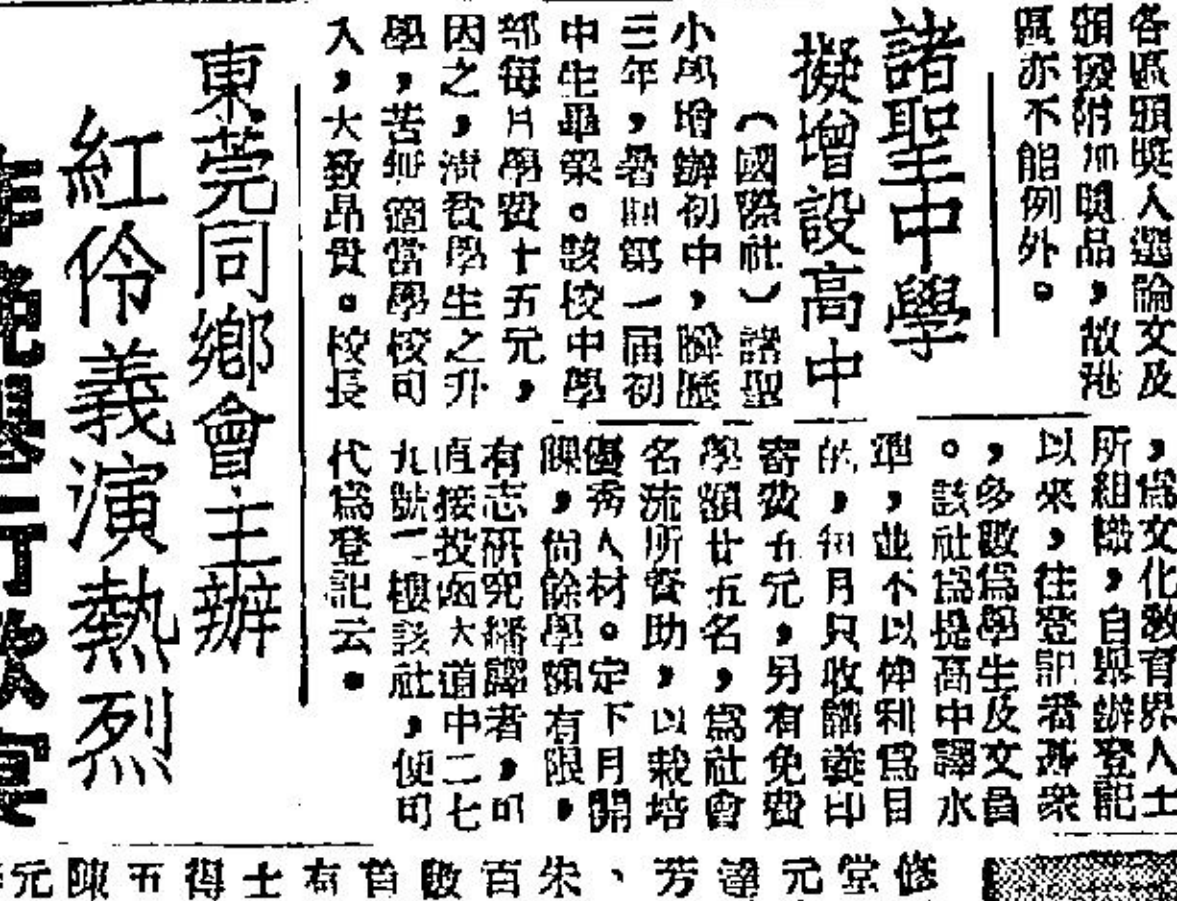 各區頒獎人選論文及
頒發附加獎品，故港
區亦不能例外。
諸聖中學
擬增設高中
（國際社）諸聖
小學增辦初中，瞬歷
三年，暑期第一屆初
中生畢業。該校中學
部每月學費十五元，
因之，清貧學生之升
學，苦無適當學校可
入，大致昂貴。校長
，為文化教育界人士
所組織，自舉辦登記
以來，往登記者甚衆
，多數為學生及文員
。該社為提高中譯水
準，並不以伸利為目
的，每月只收講義印
寄費五元，另有免費
學額廿五名，為社會
名流所資助，以栽培
優秀人材。定下月開
課，尚餘學額有限，
有志研究繙譯者，可
直接投函大道中二七
九號二樓該社，便可
代為登記云。
東莞同鄉會主辦
紅伶義演熱烈
元陳五得士有首敬百朱、芳達元堂修